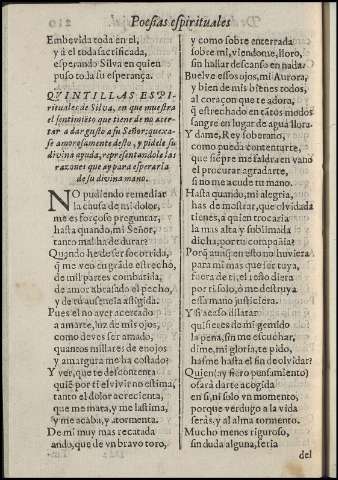 Poesias espirituales
Embevida toda en el,
y â el toda sacrificada,
esperando Silva en quien
puso toda su esperança.
QVINTILLAS ESPI-
rituales de Silva, en que muestra
el sentimiẽto que tiene de no acer-
tar a dar gusto a su Señor: quexa-
se amorosamente desto, y pidele su
divina ayuda, representandole las
razones que ay para esperarla
de su divina mano.
NO pudiendo remediar
la causa de mi dolor,
me es forçoso preguntar,
hasta quando, mi Señor,
tanto mal ha de durar?
Quando he de ser socorrida,
q̃ me veo en grãde estrecho,
de mil partes combatida,
de amor abrasado el pecho,
y de tu ausencia afligida.
Pues el no aver acertado
a amarte, luz de mis ojos,
como deves ser amado,
quantos millares de enojos
y amargura me ha costado?
Y ver, que te descontenta
quiẽ por ti el vivir no estima,
tanto el dolor acrecienta,
que me mata, y me lastima,
y me acaba, y atormenta.
De mi muy mas recatada
ando, que de vn bravo toro,
y como sobre enterrada
sobre mi, viendome, lloro,
sin hallar descanso en nada?
Buelve essos ojos, mi Aurora,
y bien de mis bienes todos,
al coraçon que te adora,
q̃ estrechado en tãtos modos
sangre en lugar de agua llora.
Y dame, Rey soberano,
como pueda contentarte,
que siẽpre me saldra en vano
el procurar agradarte,
si no me acude tu mano.
Hasta quando, mi alegria,
has de mostrar, que olvidada
tienes, a quien trocaria
la mas alta y sublimada
dicha, por tu compañia?
Porq̃ aunq̃ en esto no huviera
para mi mas que ser tuya,
fuera de ti, el resto diera
por ti solo, ò me destruya
essa mano justiciera.
Y si acaso dilatar
quisieres de mi gemido
la pena, sin me escuchar,
dime, mi gloria, te pido,
hasme hasta el fin de olvidar?
Quien (ay fiero pensamiento)
osarà darte acogida
en si, ni solo vn momento,
porque verdugo a la vida
seràs, y al alma tormento.
Mucho menos riguroso,
sin duda alguna, seria
del